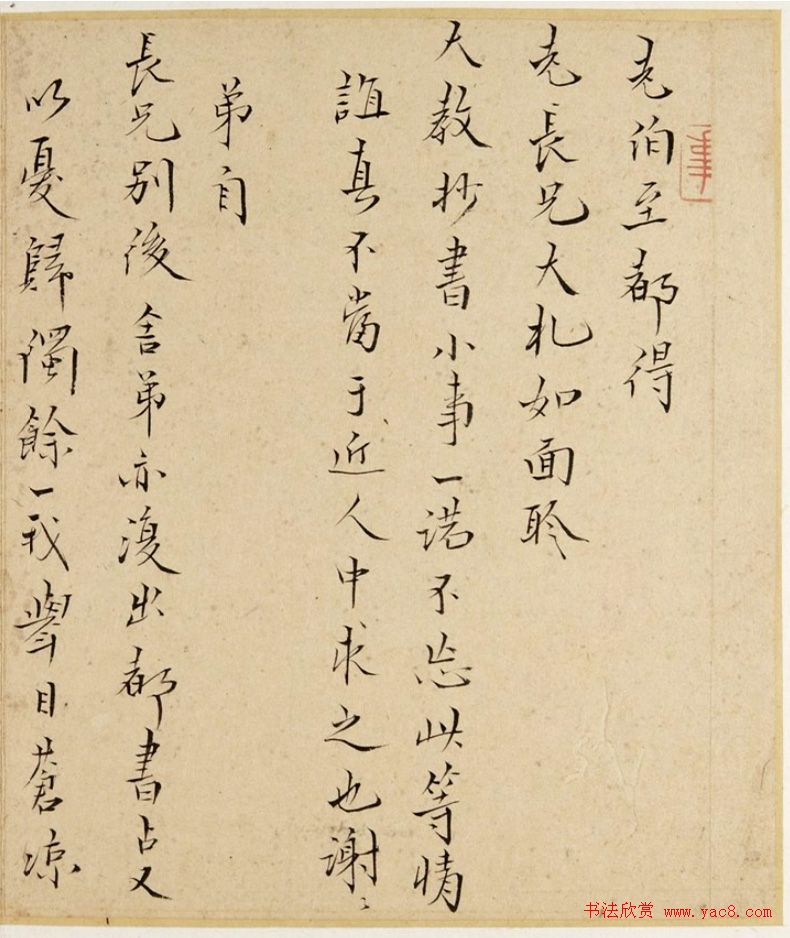 老伯至都得
老長兄大札如面聆
大教抄書小事一諾不忘此等情
誼真不當于近人中求之也謝〻
弟自
長兄別後舍弟亦復出都書占又
以憂歸獨餘一我舉目蒼涼
书法欣赏 www.yac8.com